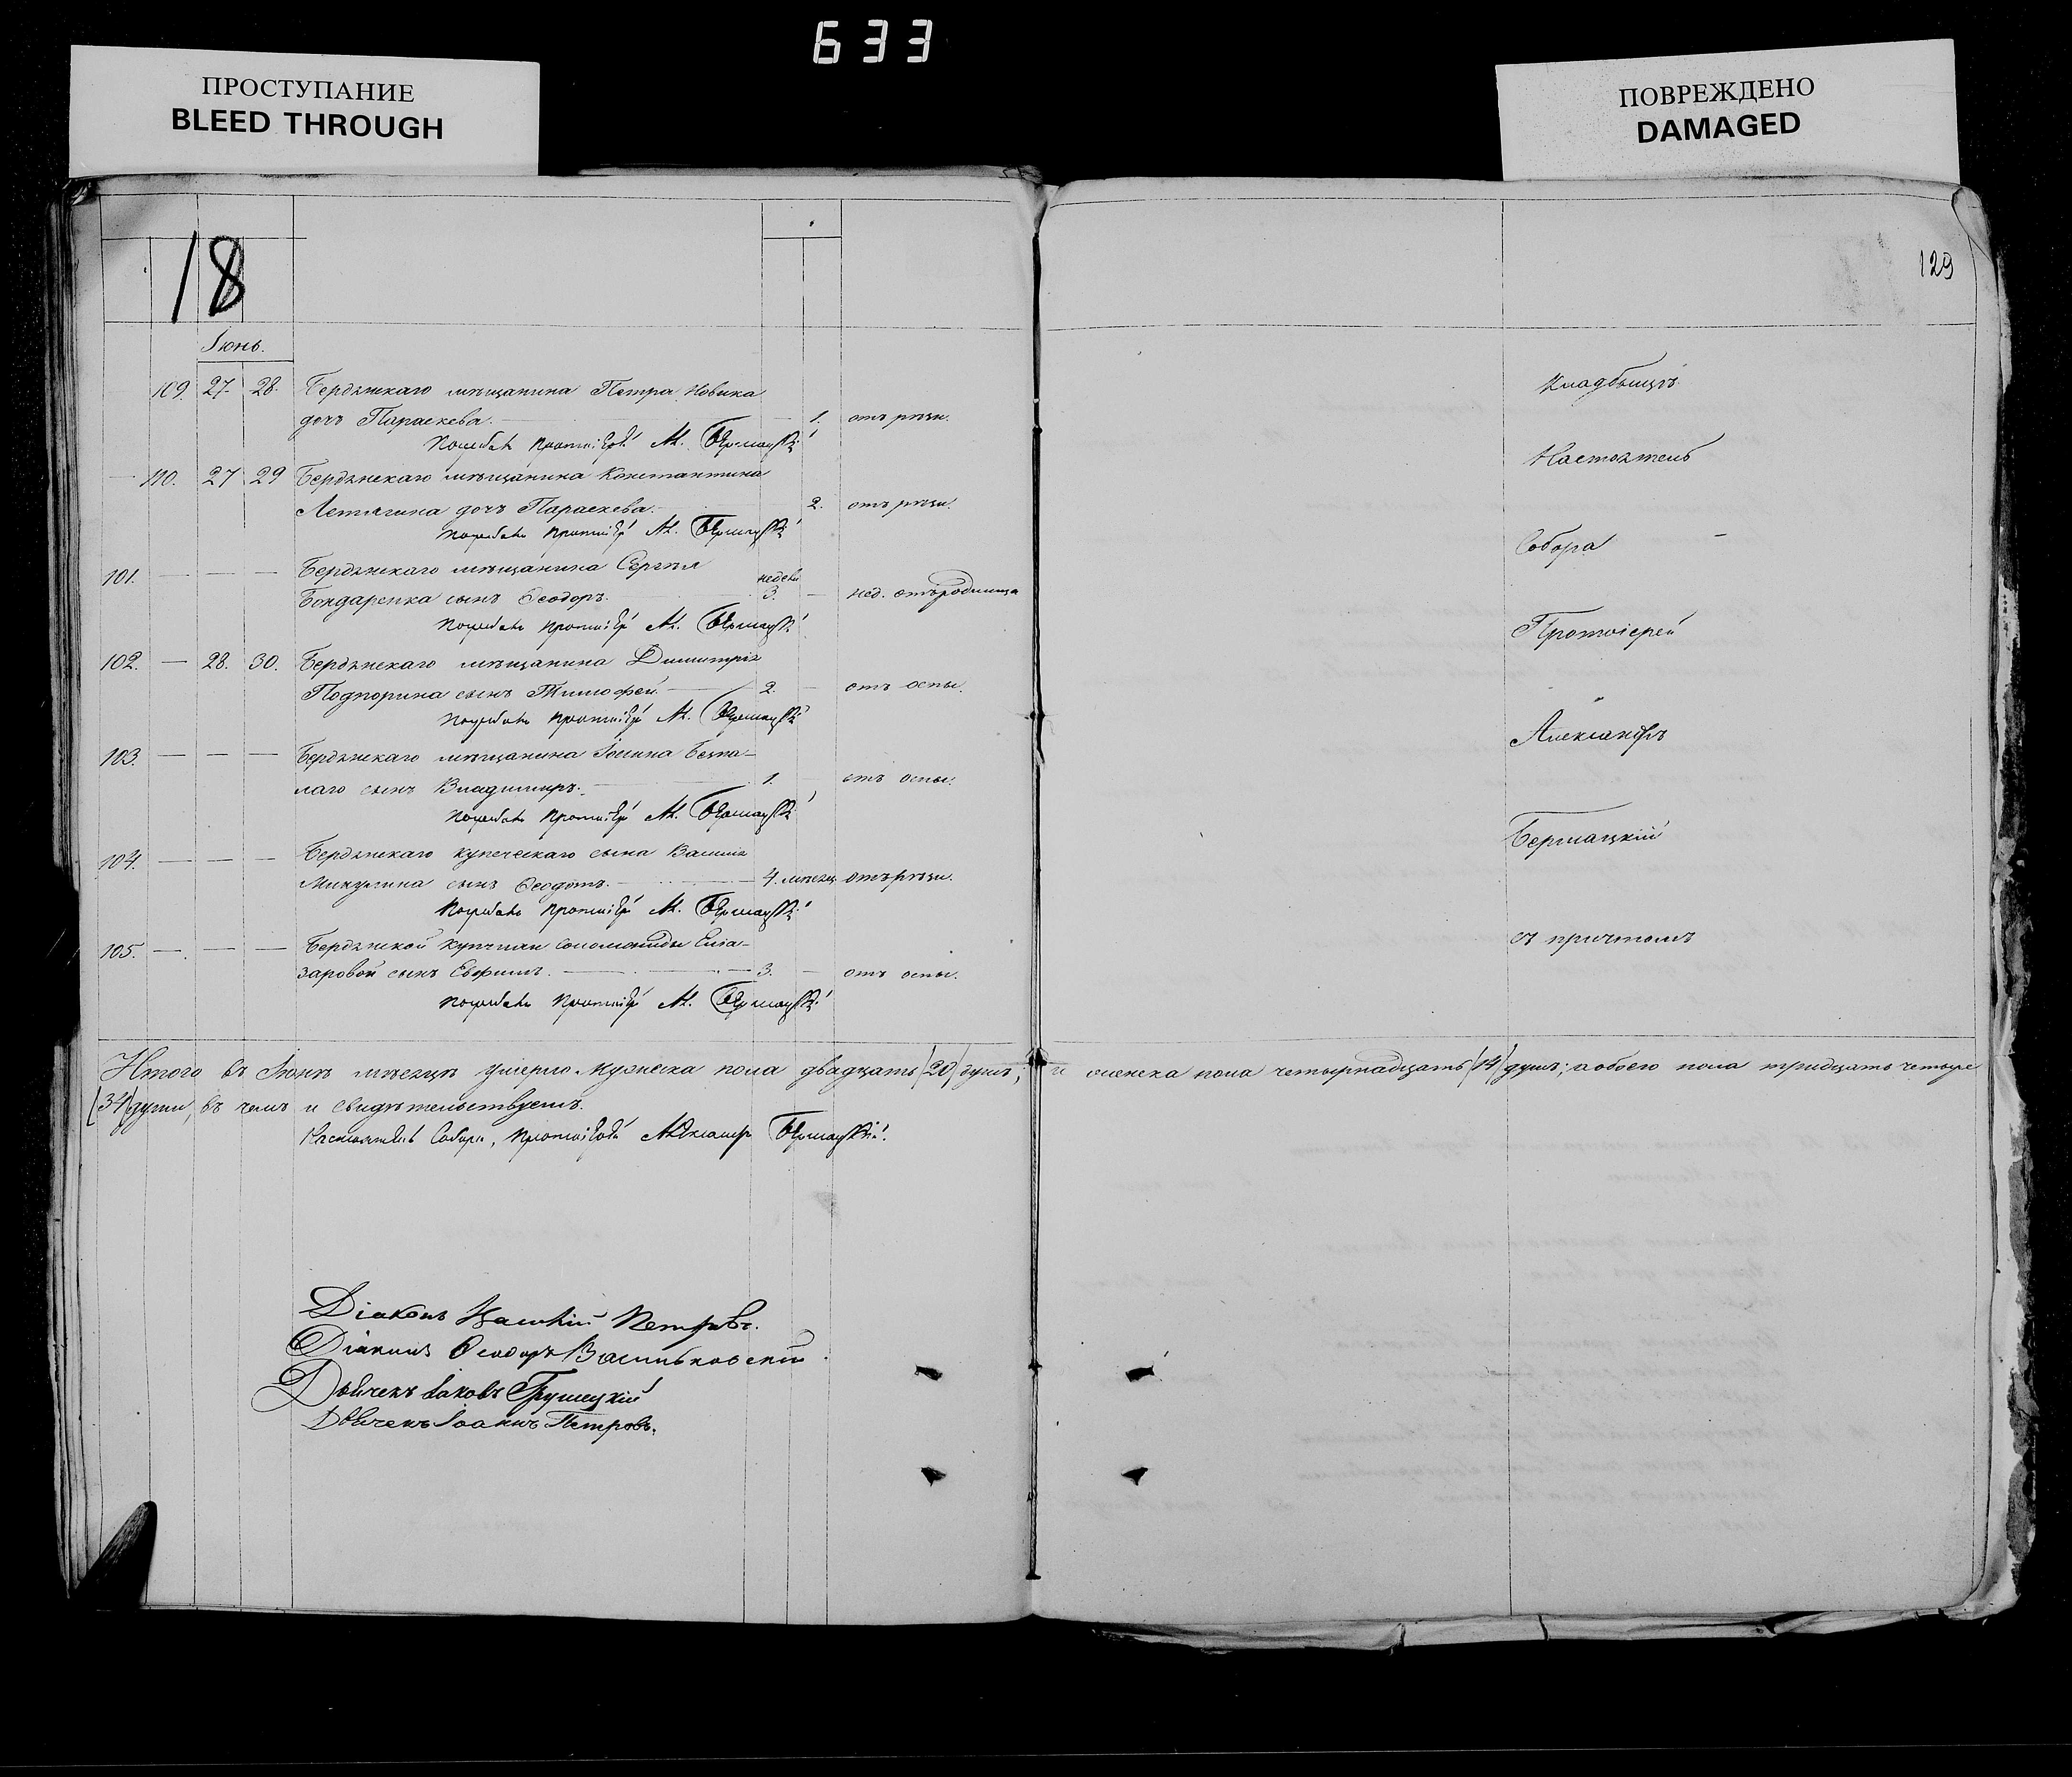 633
ПРОСТУПАНИЕ
BLEED THROUGH
ПОВРЕЖДЕНО
DAMAGED
18
129
Іюнь.
109. 27. 28. Бердянскаго мѣщанина Петра Новика
дочь Параскева. 1. отъ рѣзи.
Погребалъ Протоіерей Ал. Бермацкій
110. 27 29 Бердянскаго мѣщанина Константина
Летягина дочь Параскева. 2. отъ рѣзи.
Погребалъ Протоіерей Ал. Бермацкій
101. Бердянскаго мѣщанина Сергѣя
Бондаренка сынъ Ѳеодоръ. 3. недели нед. отъ родимца
Погребалъ Протоіерей Ал. Бермацкій
102. 28. 30. Бердянскаго мѣщанина Димитрія
Подпорина сынъ Тимофей. 2. отъ оспы.
Погребалъ Протоіерей Ал. Бермацкій
103. Бердянскаго мѣщанина
лаго сынъ Владимиръ. 1. отъ оспы.
Погребалъ Протоіерей Ал. Бермацкій
104. Бердянскаго купеческаго сына Василія
Микулина сынъ Ѳеодотъ. 4. мѣсяц. отъ рѣзи.
Погребалъ Протоіерей Ал. Бермацкій
105. Бердянской купчихи Соломониды Елеа-
заровой сынъ Ефимъ. 3. отъ оспы.
Погребалъ Протоіерей Ал. Бермацкій
Кладбищѣ.
Настоятель
Собора
Протоіерей
Александръ
Бермацкій
съ причтомъ
Итого въ Іюнѣ мѣсяцѣ умерло мужеска пола двадцать (20) душъ, и женска пола четырнадцать (14) душъ; а обоего пола тридцать четыре
(34) души, въ чемъ и свидѣтельствуемъ.
Настоятель Собора, Протоіерей Александръ Бермацкій.
Діаконъ Петровъ.
Діаконъ Ѳеодоръ Васильковскій.
Дьячекъ Іаковъ Грушецкій
Дьячекъ Іоаннъ Петровъ.